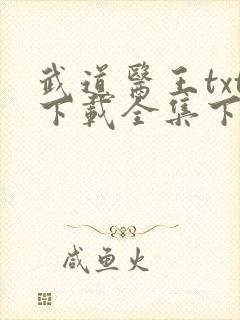 武道醫王txt
下載全集下
咸鱼火